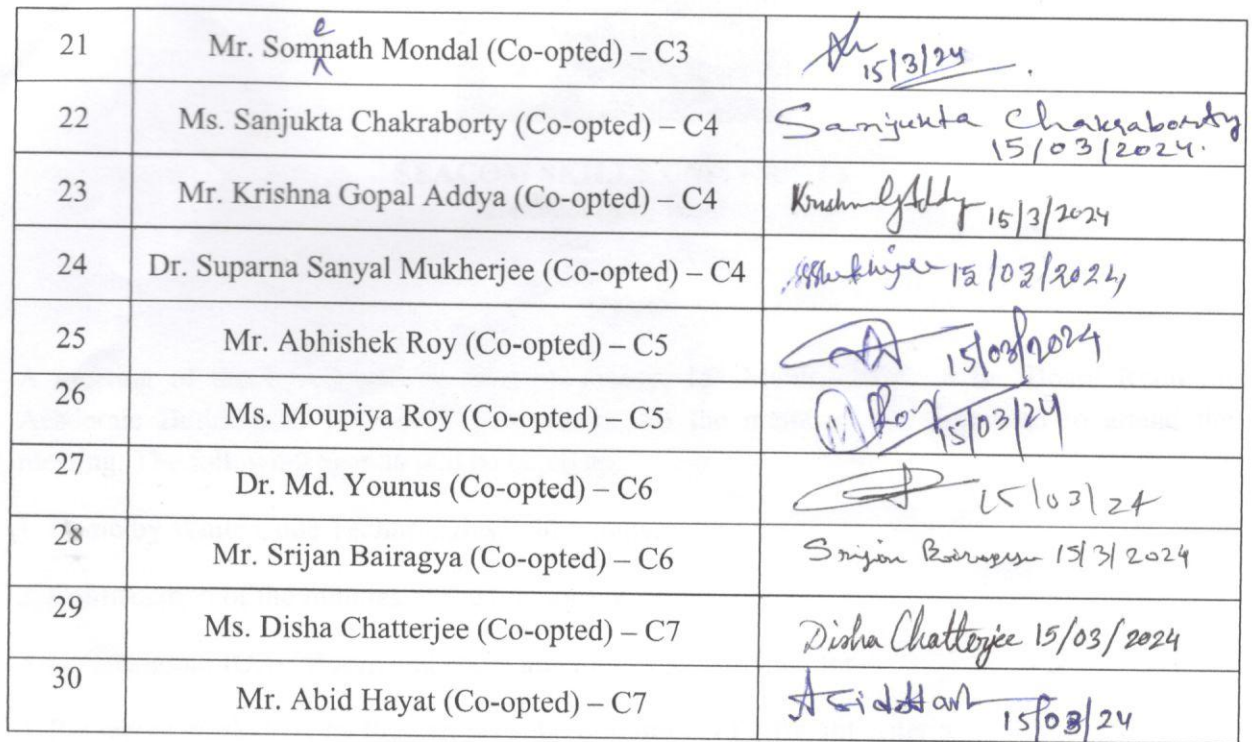 21 Mr. Somenath Mondal (Co-opted) – C3 15/3/24
22 Ms. Sanjukta Chakraborty (Co-opted) – C4 Sanjukta Chakraborty
15/03/2024.
23 Mr. Krishna Gopal Addya (Co-opted) – C4 15/3/2024
24 Dr. Suparna Sanyal Mukherjee (Co-opted) – C4 SSMukherjee 15/03/2024
25 Mr. Abhishek Roy (Co-opted) – C5 15/03/2024
26 Ms. Moupiya Roy (Co-opted) – C5 M Roy 15/03/24
27 Dr. Md. Younus (Co-opted) – C6 15/03/24
28 Mr. Srijan Bairagya (Co-opted) – C6 Srijan Bairagya 15/3/2024
29 Ms. Disha Chatterjee (Co-opted) – C7 Disha Chatterjee 15/03/2024
30 Mr. Abid Hayat (Co-opted) – C7 15/03/24